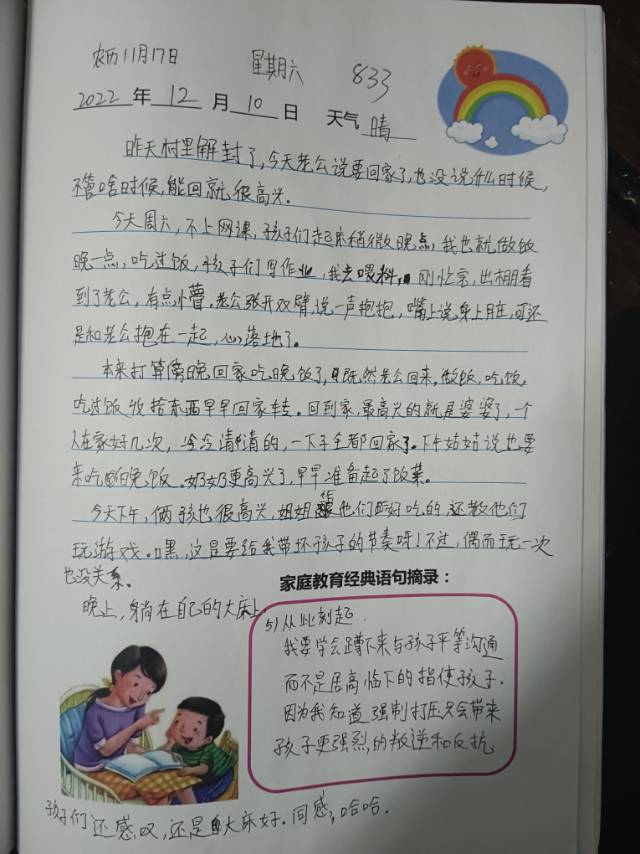 农历11月17日 星期六 833
2022年12月10日 天气 晴
昨天村里解封了,今天老公说要回家了,也没说什么时候,
不管啥时候,能回就很高兴。
今天周六,不上网课,孩子们起床稍微晚点,我也就做饭
晚一点,吃过饭,孩子们写作业,我去喂料,刚忙完,出棚看
到了老公,有点小懵,老公张开双臂,说一声抱抱,嘴上说身上脏,可还
是和老公抱在一起,心落地了。
本来打算傍晚回家吃晚饭了,既然老公回来,做饭,吃饭,
吃过饭收拾东西早早回家转。回到家,最高兴的就是婆婆了,一个
人在家好几次,冷冷清清的,一下子全都回家了。下午姑姑说也要
来吃晚饭。奶奶更高兴了,早早准备起了饭菜。
今天下午,俩孩也很高兴,姐姐给他们好吃的,还教他们
玩游戏。嘿,这是要给我带坏孩子的节奏呀!不过,偶而玩一次
也没关系。
家庭教育经典语句摘录:
晚上,躺在自己的大床上
51从此刻起
我要学会蹲下来与孩子平等沟通
而不是居高临下的指使孩子.
因为我知道强制打压只会带来
孩子更强烈的叛逆和反抗
孩子们还感叹,还是大床好.同感,哈哈.